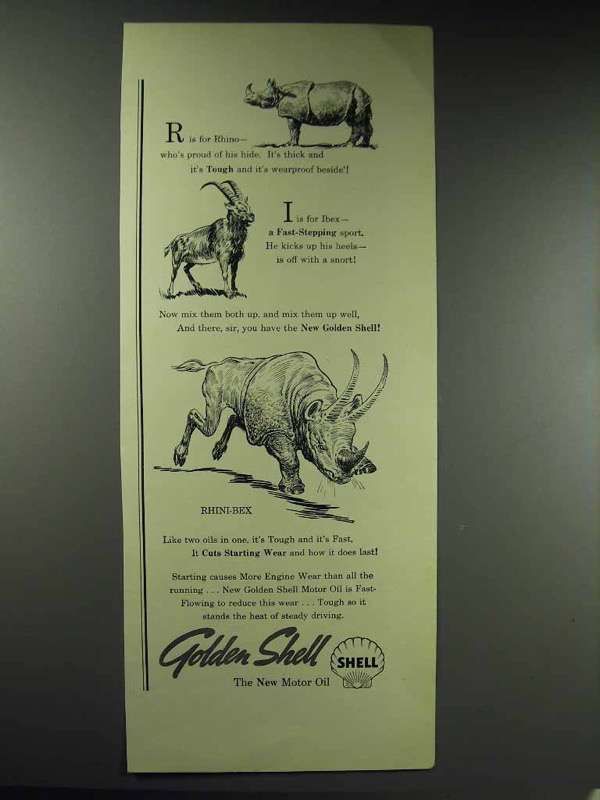 R is for Rhino—
who's proud of his hide. It's thick and
it's Tough and it's wearproof beside'!
I is for Ibex—
a Fast-Stepping sport.
He kicks up his heels—
is off with a snort!
Now mix them both up, and mix them up well,
And there, sir, you have the New Golden Shell!
RHINI-BEX
Like two oils in one, it's Tough and it's Fast,
It Cuts Starting Wear and how it does last!
Starting causes More Engine Wear than all the
running . . . New Golden Shell Motor Oil is Fast-
Flowing to reduce this wear . . . Tough so it
stands the heat of steady driving.
Golden Shell
SHELL
The New Motor Oil